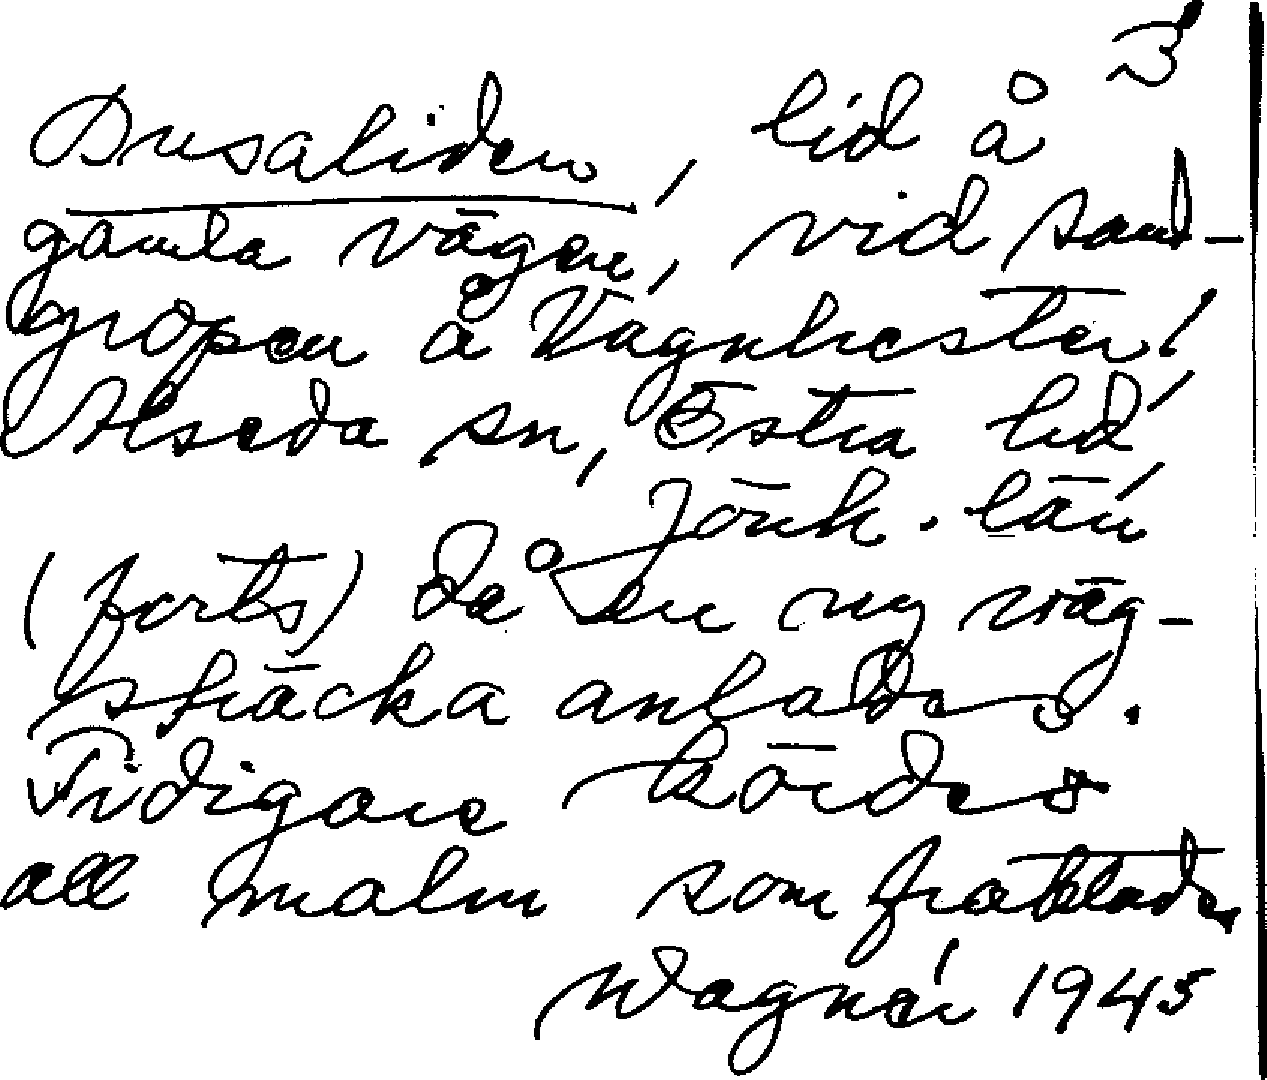 3
Drusaliden, lid å
gamla vägen, vid sand-
gropen å Vagnhester.
Alseda sn, Östra hd
Jönk. län
(forts) då en ny väg-
sträcka anlades.
Tidigare kördes
all malm som fraktades
Wagnér 1945